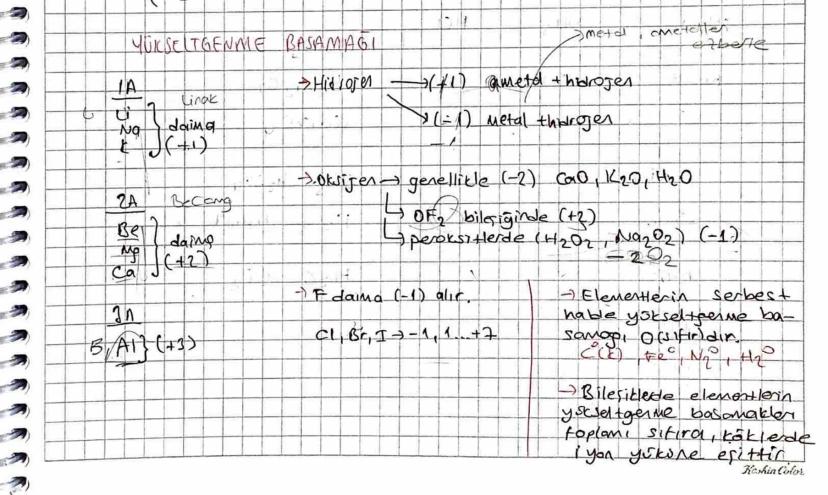 YÜKSELTGENME BASAMAĞI
metal, ametalleri
ezberle
1A
Linak
Li
Na
K
daima
(+1)
2A
BeCamg
Be
Mg
Ca
daima
(+2)
3A
B, Al} (+3)
→ Hidrojen → (+1) ametal + hidrojen
(-1) metal + hidrojen
→ Oksijen → genellikle (-2) CaO, K2O, H2O
↳ OF2 bileşiğinde (+2)
↳ peroksitlerde (H2O2, Na2O2) (-1)
-2O2
→ F daima (-1) alır.
Cl, Br, I → -1, 1...+7
→ Elementlerin serbest
halde yükseltgenme ba-
samağı 0(sıfır)dır.
C⁰(k), Fe⁰, N2⁰, H2⁰
→ Bileşiklerde elementlerin
yükseltgenme basamakları
toplamı sıfıra, köklerde
iyon yüküne eşittir.
KeskinColor